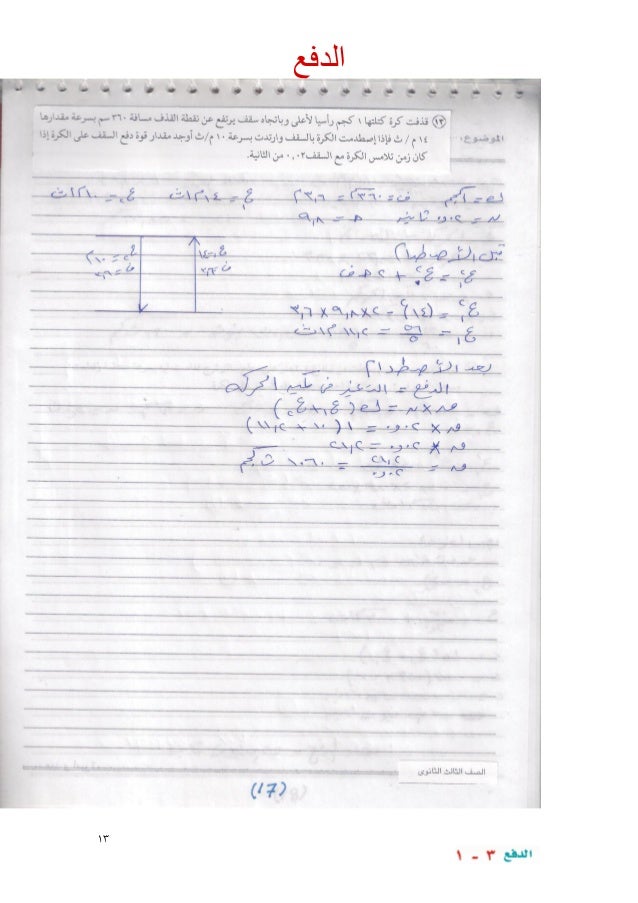 الدفع
١٣ قذفت كرة كتلتها ١ كجم رأسيا لأعلى وباتجاه سقف يرتفع عن نقطة القذف مسافة ٣٦٠ سم بسرعة مقدارها
الموضوع:
١٤ م / ث فإذا إصطدمت الكرة بالسقف وارتدت بسرعة ١٠ م/ث أوجد مقدار قوة دفع السقف على الكرة إذا
كان زمن تلامس الكرة مع السقف ٠,٠٢ من الثانية.
ك = ١ كجم ف = ٣٦٠ = ٣,٦ م ع = ١٤ م/ث ع = ١٠ م/ث
ن = ٠,٠٢ ثانية ء = ٩,٨
قبل الأصطدام
ع٢ = ع٢ + ٢ ء ف
ع٢ = (١٤)٢ - ٢×٩,٨×٣,٦
ع = ٥٦/٥ = ١١,٢ م/ث
بعد الأصطدام
الدفع = التغير فى كمية الحركة
ق × ن = ك (ع١ + ع٢)
ق × ٠,٠٢ = ١ (١٠ + ١١,٢)
ق × ٠,٠٢ = ٢١,٢
ق = ٢١,٢/٠,٠٢ = ١٠٦٠ ث كجم
الصف الثالث الثانوى
(١٦)
١٣
الدفع ٣ - ١